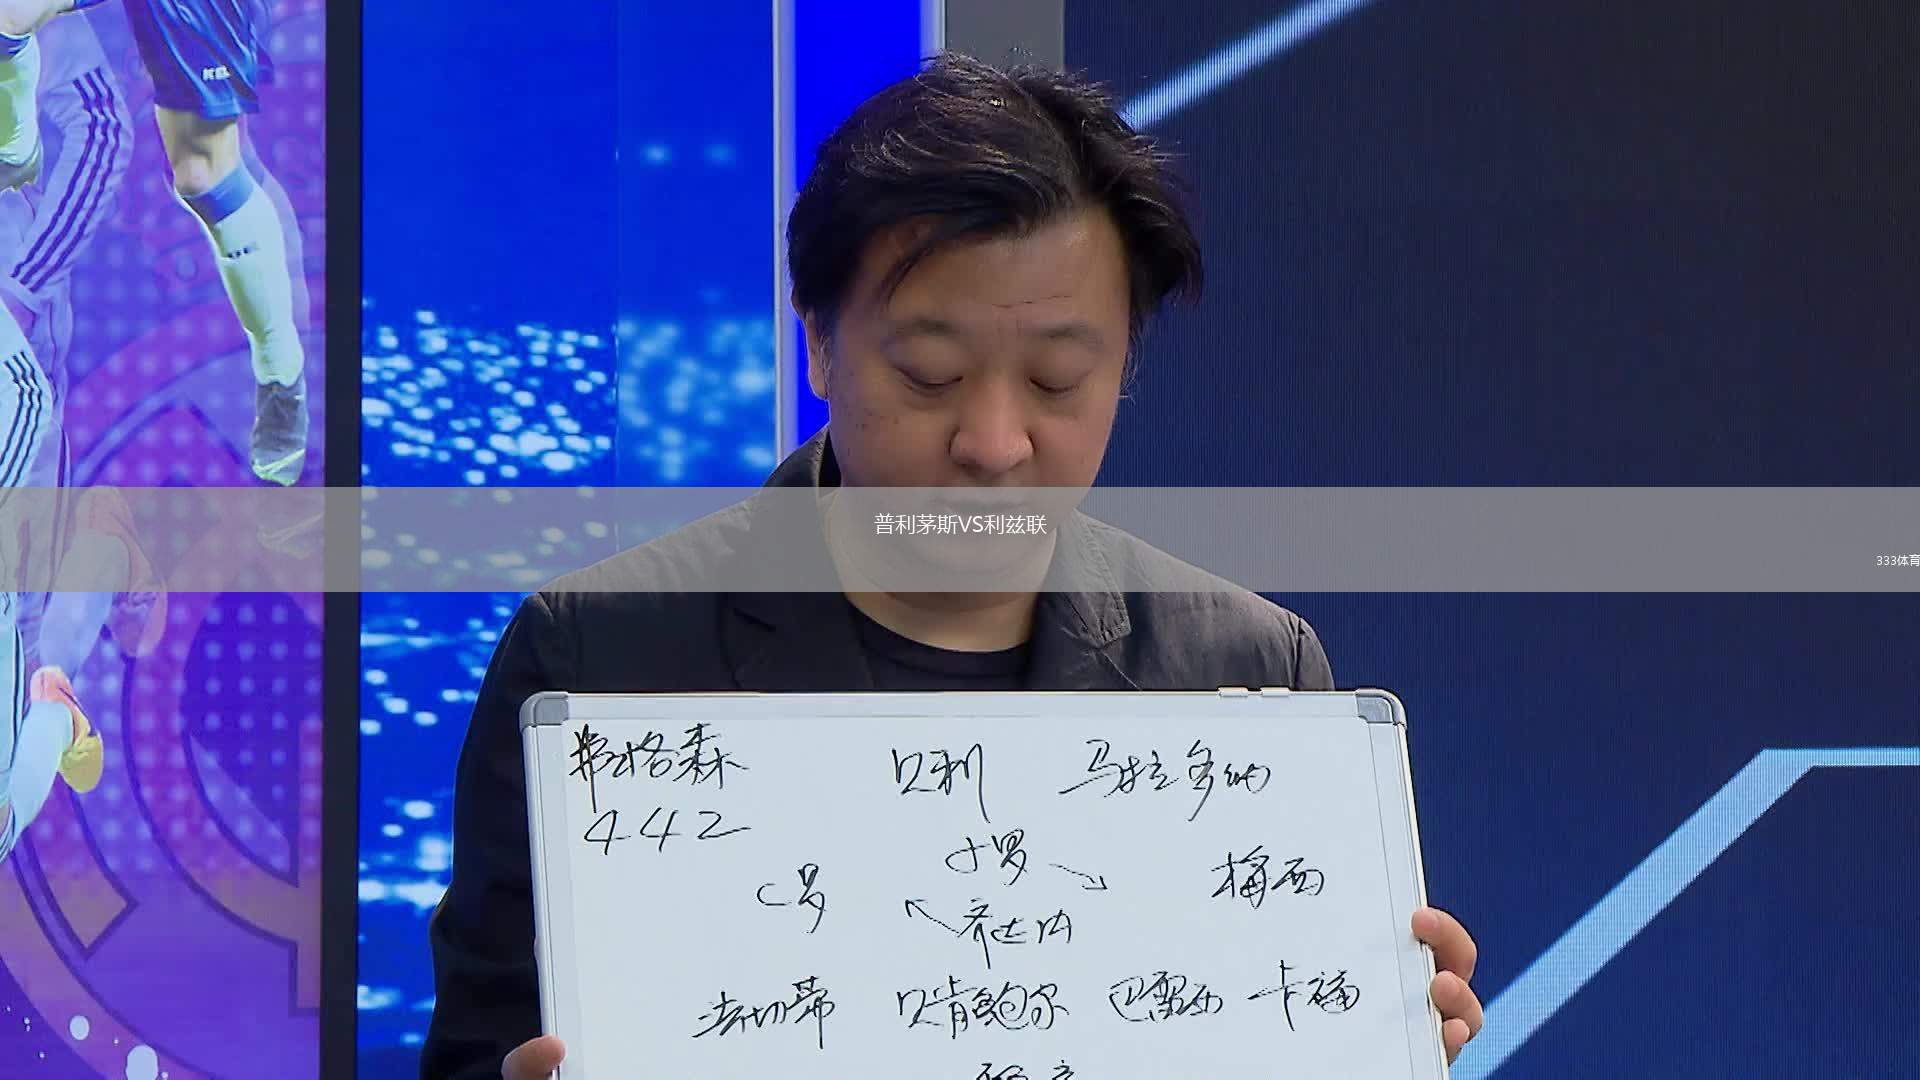 普利茅斯VS利兹联
333体育
弗格森 贝利 马拉多纳
442
小罗
C罗 梅西
齐达内
法切蒂 贝肯鲍尔 巴雷西 卡福